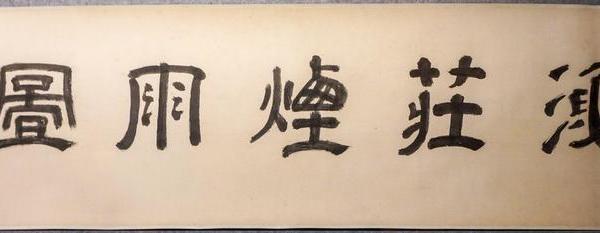 莊煙雨圖